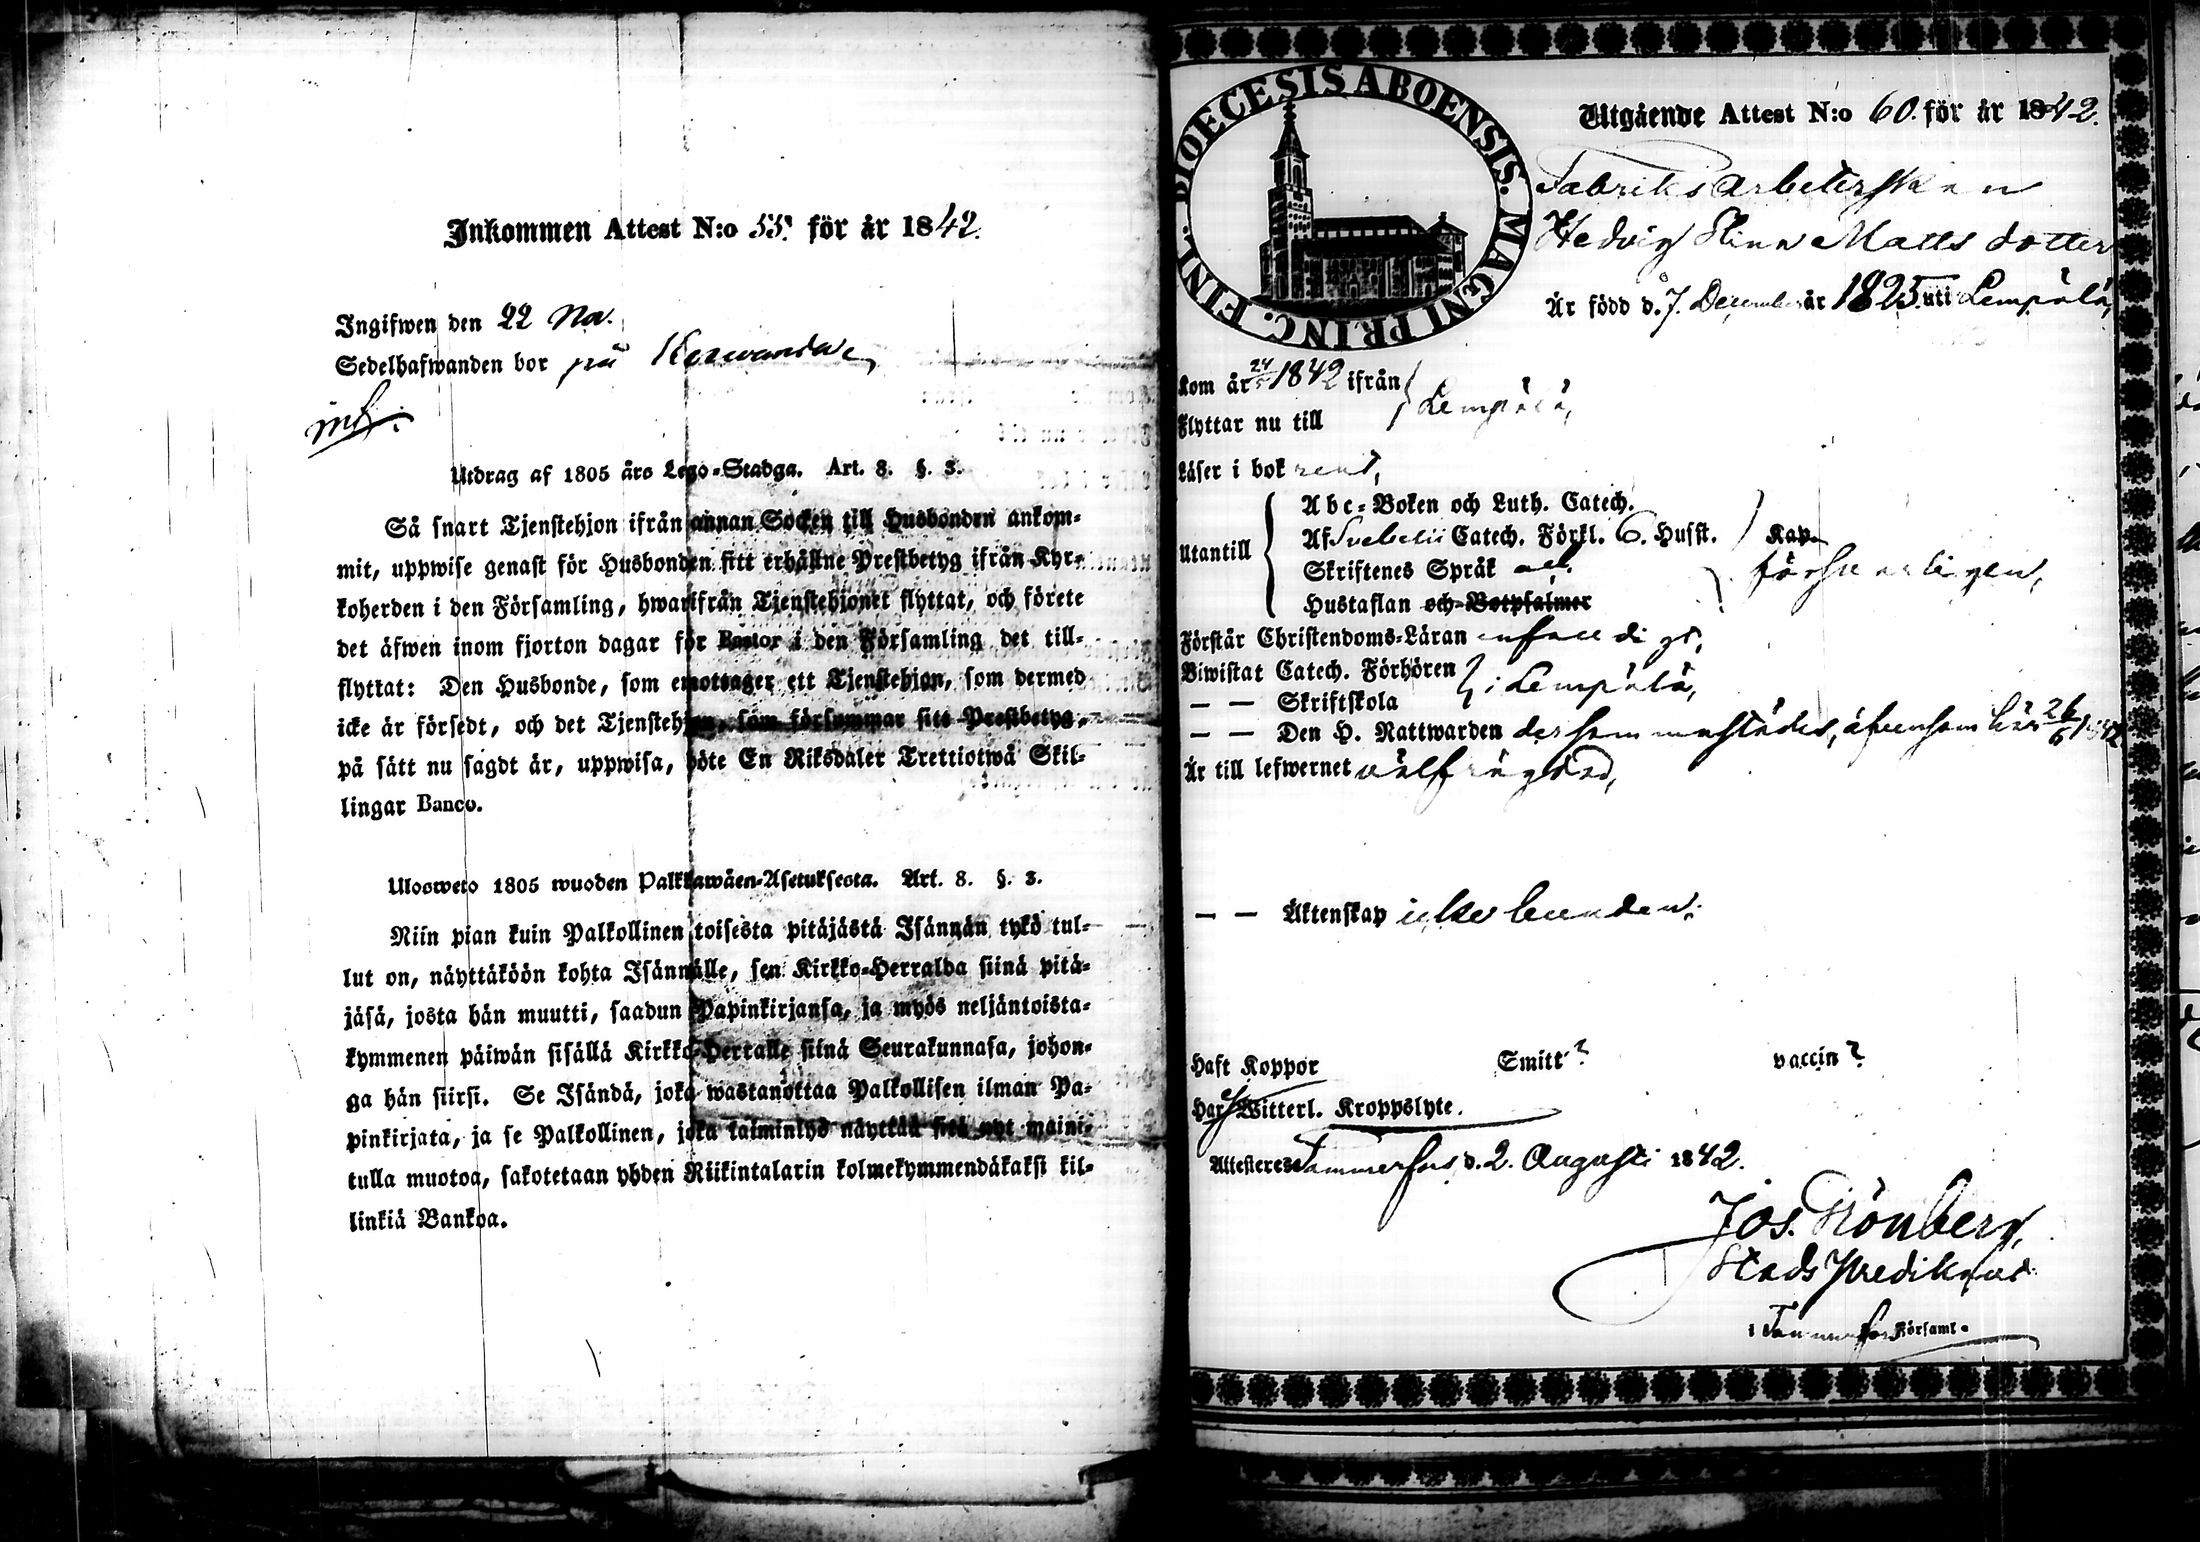 Inkommen Attest N:o 55. för år 1842.
Ingifwen den 22 No.
Sedelhafwanden bor på
inf.
Utdrag af 1805 års Lego-Stadga. Art. 8. §. 3.
Så snart Tjenstehjon ifrån annan Socken till Husbonden ankom-
mit, uppwise genast för Husbonden sitt erhållne Prestbetyg ifrån Kyr-
koherden i den Församling, hwarifrån Tjenstehjonet flyttat, och förete
det äfwen inom fjorton dagar för Pastor i den Församling det till-
flyttat: Den Husbonde, som emottager ett Tjenstehjon, som dermed
icke är försedt, och det Tjenstehjon, som försummar sitt Prestbetyg,
på sätt nu sagdt är, uppwisa, böte En Riksdaler Trettiotwå Skil-
lingar Banco.
Ulosweto 1805 wuoden Palkkawäen-Asetuksesta. Art. 8. §. 3.
Niin pian kuin Palkollinen toisesta pitäjästä Isännän tykö tul-
lut on, näyttäköön kohta Isännälle, sen Kirkko-Herralda siinä pitä-
jäsä, josta hän muutti, saadun Papinkirjansa, ja myös neljäntoista-
kymmenen päiwän sisällä Kirkko-Herralle siinä Seurakunnasa, johon-
ga hän siirsi. Se Isändä, joka wastanottaa Palkollisen ilman Pa-
pinkirjata, ja se Palkollinen, joka laiminlyö näyttää sitä nyt maini-
tulla muotoa, sakotetaan yhden Riikintalarin kolmekymmendäkaksi kil-
linkiä Bankoa.
DIOECESIS ABOENSIS. MAGNI PRINC. FINL.
Utgående Attest N:o 60. för år 1842.
Fabriksarbeterskan
Hedvig Stina Matts dotter
Är född d. 7. December år 1825 uti Lempälä,
Kom år 24/5 1842 ifrån
Lempälä,
Flyttar nu till
Läser i bok rent,
Abc-Boken och Luth. Catech.
Utantill Af Svebelii Catech. Förkl. 6. Husst. Kap.
Skriftenes Språk
försvarligen,
Hustaflan och Botpsalmer
Förstår Christendoms-Läran enfaldigt,
Biwistat Catech. Förhören
i Lempälä,
— — Skriftskola
— — Den H. Nattwarden dersammastädes, äfvensom här 26/6 1842
Är till lefwernet välfrägdad,
— — Äktenskap icke bunden.
Haft Koppor Smitt? vaccin?
Har Witterl. Kroppslyte.
Attesteres Tammerfors d. 2. Augusti 1842.
Jos. Grönberg,
Stads Predikant
i Tammerfors Församl.